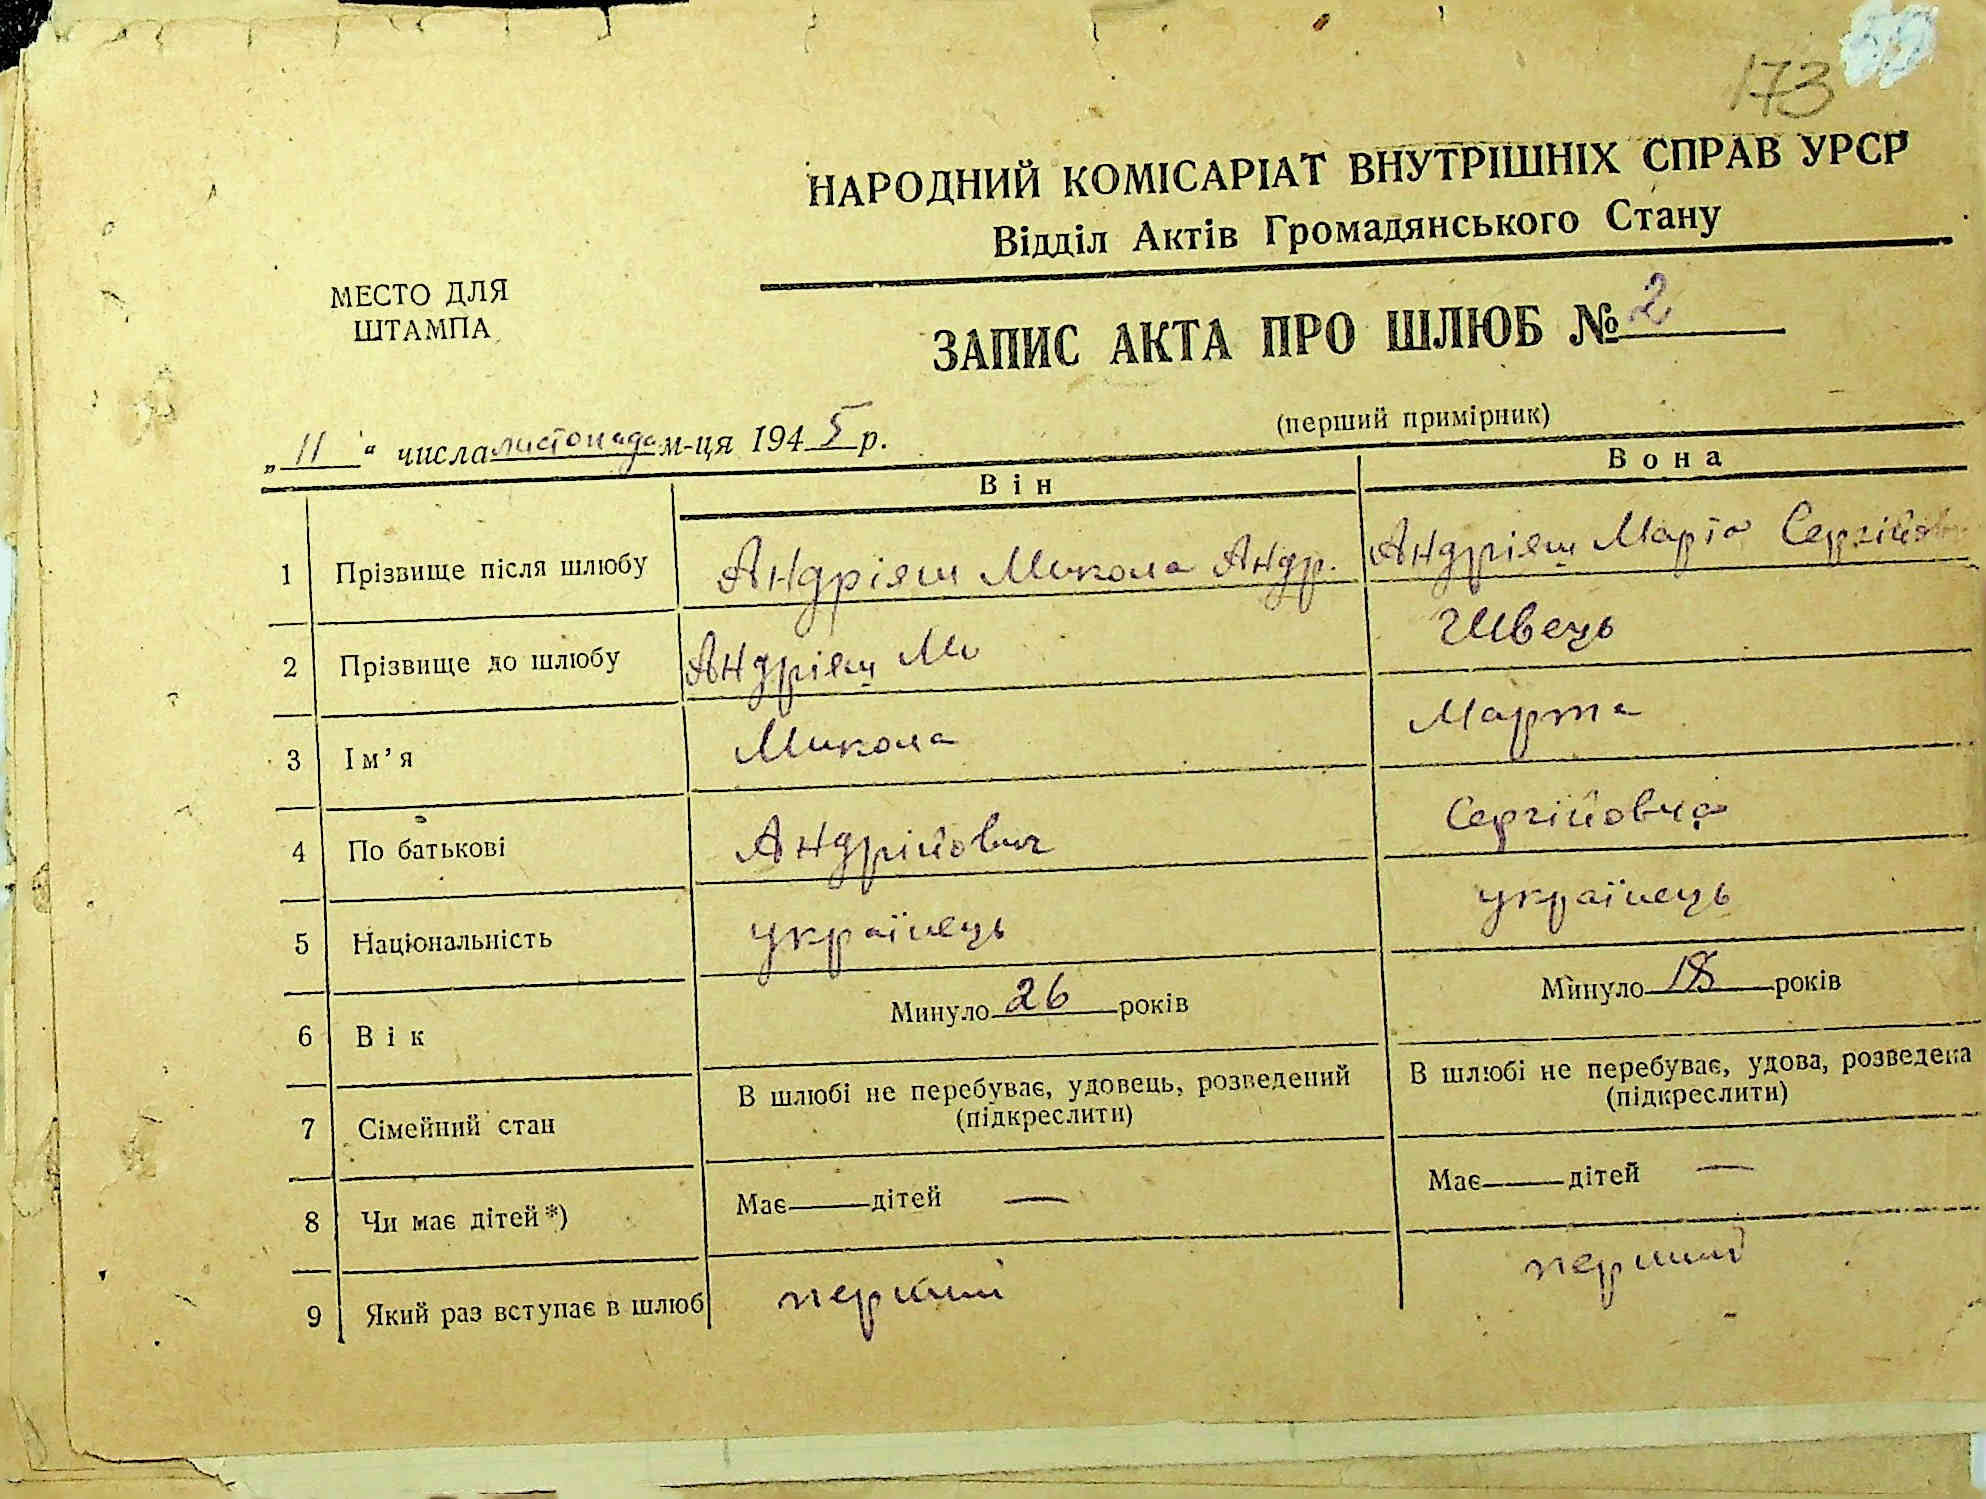 173
НАРОДНИЙ КОМІСАРІАТ ВНУТРІШНІХ СПРАВ УРСР
Відділ Актів Громадянського Стану
МЕСТО ДЛЯ
ШТАМПА
ЗАПИС АКТА ПРО ШЛЮБ № 2
(перший примірник)
„11“ числа листопада м-ця 1945 р.
Він Вона
1 Прізвище після шлюбу Андріяш Микола Андр. Андріяш Марта Сергійов
2 Прізвище до шлюбу Андріяш Ми Швець
3 Ім’я Микола Марта
4 По батькові Андрійович Сергійовна
5 Національність українець українець
6 Вік Минуло 26 років Минуло 18 років
7 Сімейний стан В шлюбі не перебуває, удовець, розведений (підкреслити) В шлюбі не перебуває, удова, розведена (підкреслити)
8 Чи має дітей*) Має——дітей — Має——дітей —
9 Який раз вступає в шлюб перший перший